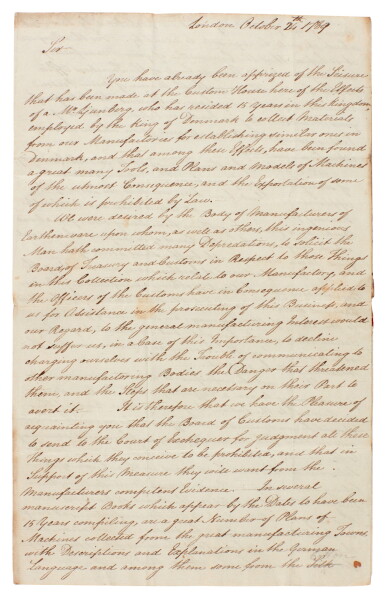 London October 24th 1789
Sir
You have already been apprized of the Seizure
that has been made at the Custom House here of the Effects
of a Mr. Ljunberg, who has resided 15 Years in this Kingdom
employed by the King of Denmark to collect Materials
from our Manufactories for establishing similar ones in
Denmark, and that among these Effects, have been found
a great many Tools, and Plans and Models of Machines
of the utmost Consequence, and the Exportation of some
of which is prohibited by Law.
We were desired by the Body of Manufacturers of
Earthenware upon whom, as well as others, this ingenious
Man hath committed many Depredations, to solicit the
Boards of Treasury and Customs in Respect to those Things
in this Collection which relate to our Manufactory, and
the Officers of the Customs have in Consequence applied to
us for Assistance in the prosecuting of this Business, and
our Regard, to the general manufacturing Interest would
not suffer us, in a Case of this Importance, to decline
charging ourselves with the Trouble of communicating to
other manufacturing Bodies the Danger that threatened
them, and the Steps that are necessary on their Part to
avert it. It is therefore that we have the Pleasure of
acquainting you that the Board of Customs have decided
to send to the Court of Exchequer for Judgment all those
things which they conceive to be prohibited, and that in
Support of this Measure they will want from the
Manufacturers competent Evidence. In several
manuscript Books which appear by the Dates to have been
15 Years compiling, are a great Number of Plans of
Machines collected from the great manufacturing Towns
with Descriptions and Explanations in the German
Language and among them some from the